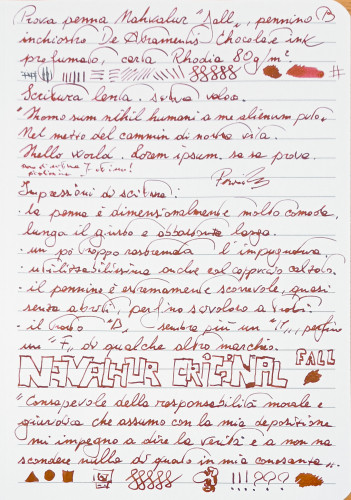 Prova penna Nahvalur "Fall", pennino B
inchiostro De Atramentis Chocolate ink
profumato, carta Rhodia 80g/m².
Scrittura lenta. scrittura veloce.
"Homo sum nihil humani a me alienum puto"
Nel mezzo del cammin di nostra vita.
Hello world. Lorem ipsum. sa sa prova.
Impressioni di scrittura:
· la penna è dimensionalmente molto comoda,
lunga il giusto e abbastanza larga.
· un po' troppo rastremata l'impugnatura.
· utilizzabilissima anche col cappuccio calzato.
· il pennino è estremamente scorrevole, quasi
senza attriti, perfino scivoloso a tratti!
· il tratto "B", sembra più un "M", perfino
un "F" di qualche altro marchio.
NAVALHUR ORIGINAL FALL
"Consapevole della responsabilità morale e
giuridica che assumo con la mia deposizione
mi impegno a dire la verità e a non na
scondere nulla di quanto in mia conoscenza".